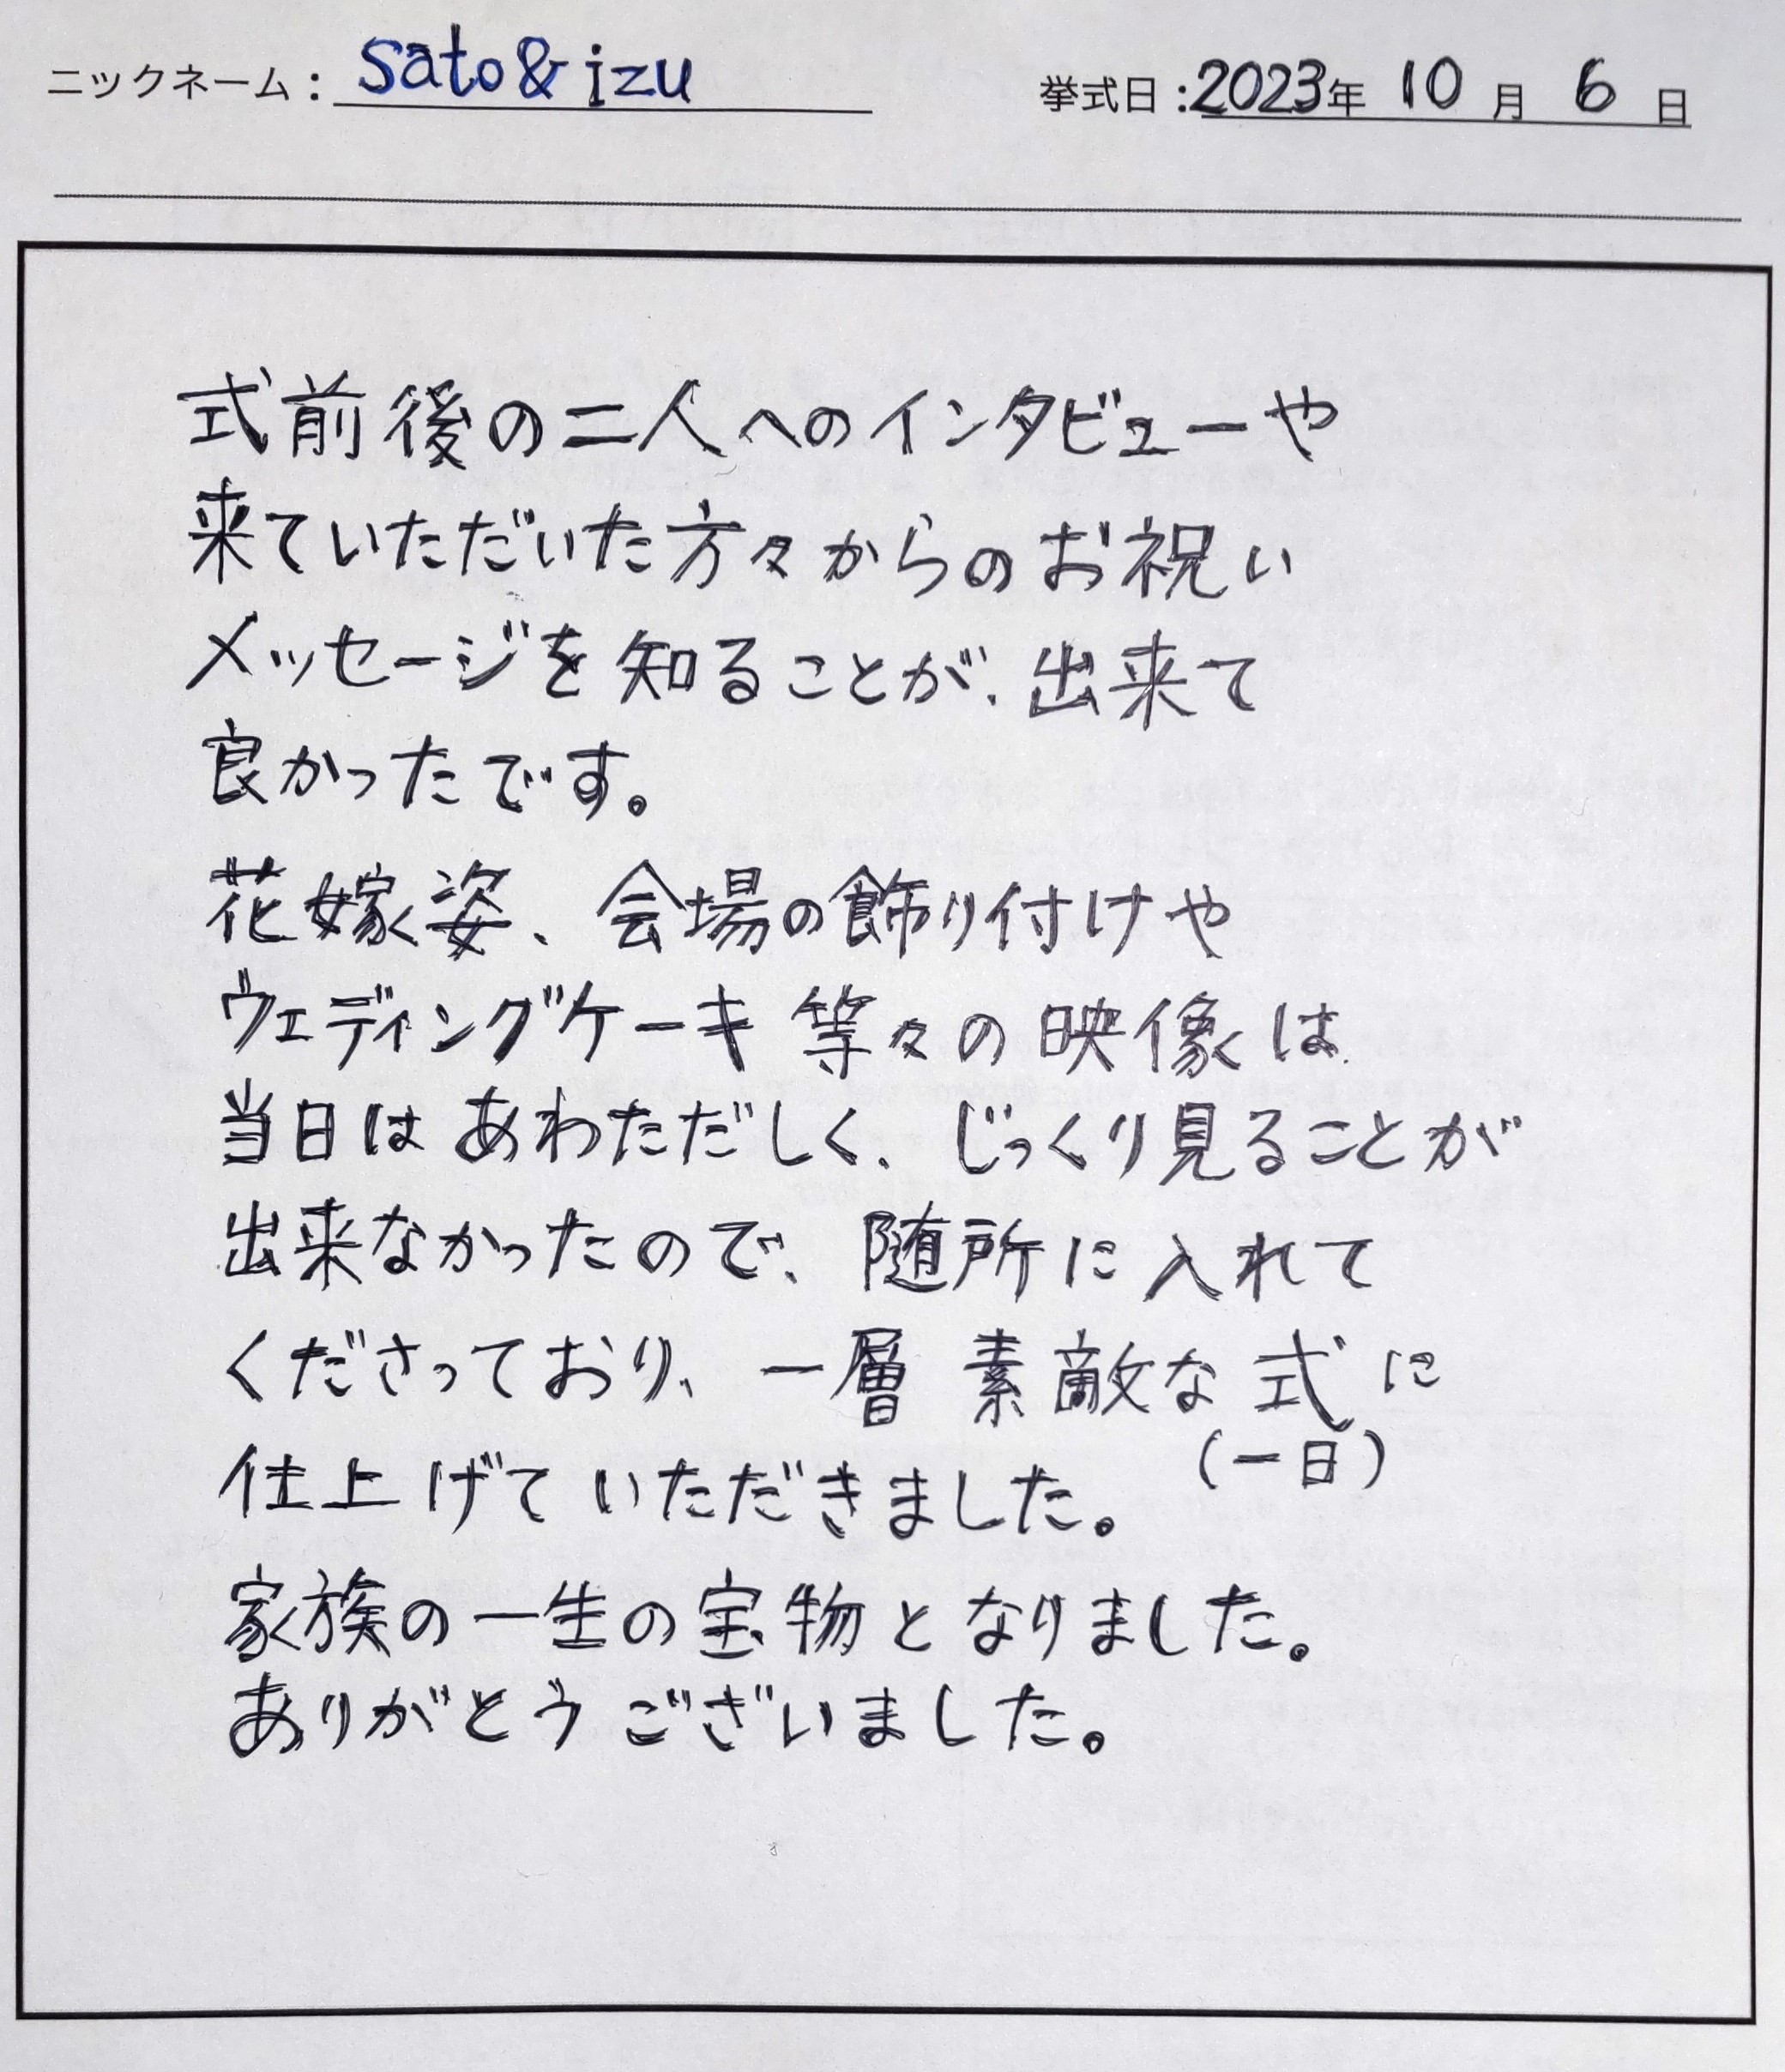 ニックネーム： sato&izu 挙式日：2023年 10月 6日
式前後の二人へのインタビューや
来ていただいた方々からのお祝い
メッセージを知ることが、出来て
良かったです。
花嫁姿、会場の飾り付けや
ウェディングケーキ等々の映像は
当日はあわただしく、じっくり見ることが
出来なかったので、随所に入れて
くださっており、一層 素敵な式に
(一日)
仕上げていただきました。
家族の一生の宝物となりました。
ありがとうございました。